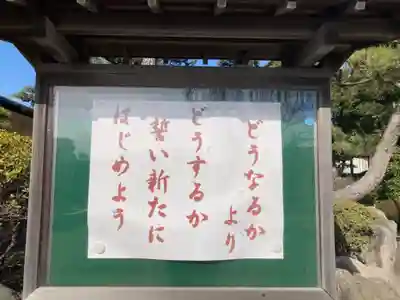 どうなるか
より
どうするか
誓い新たに
はじめよう